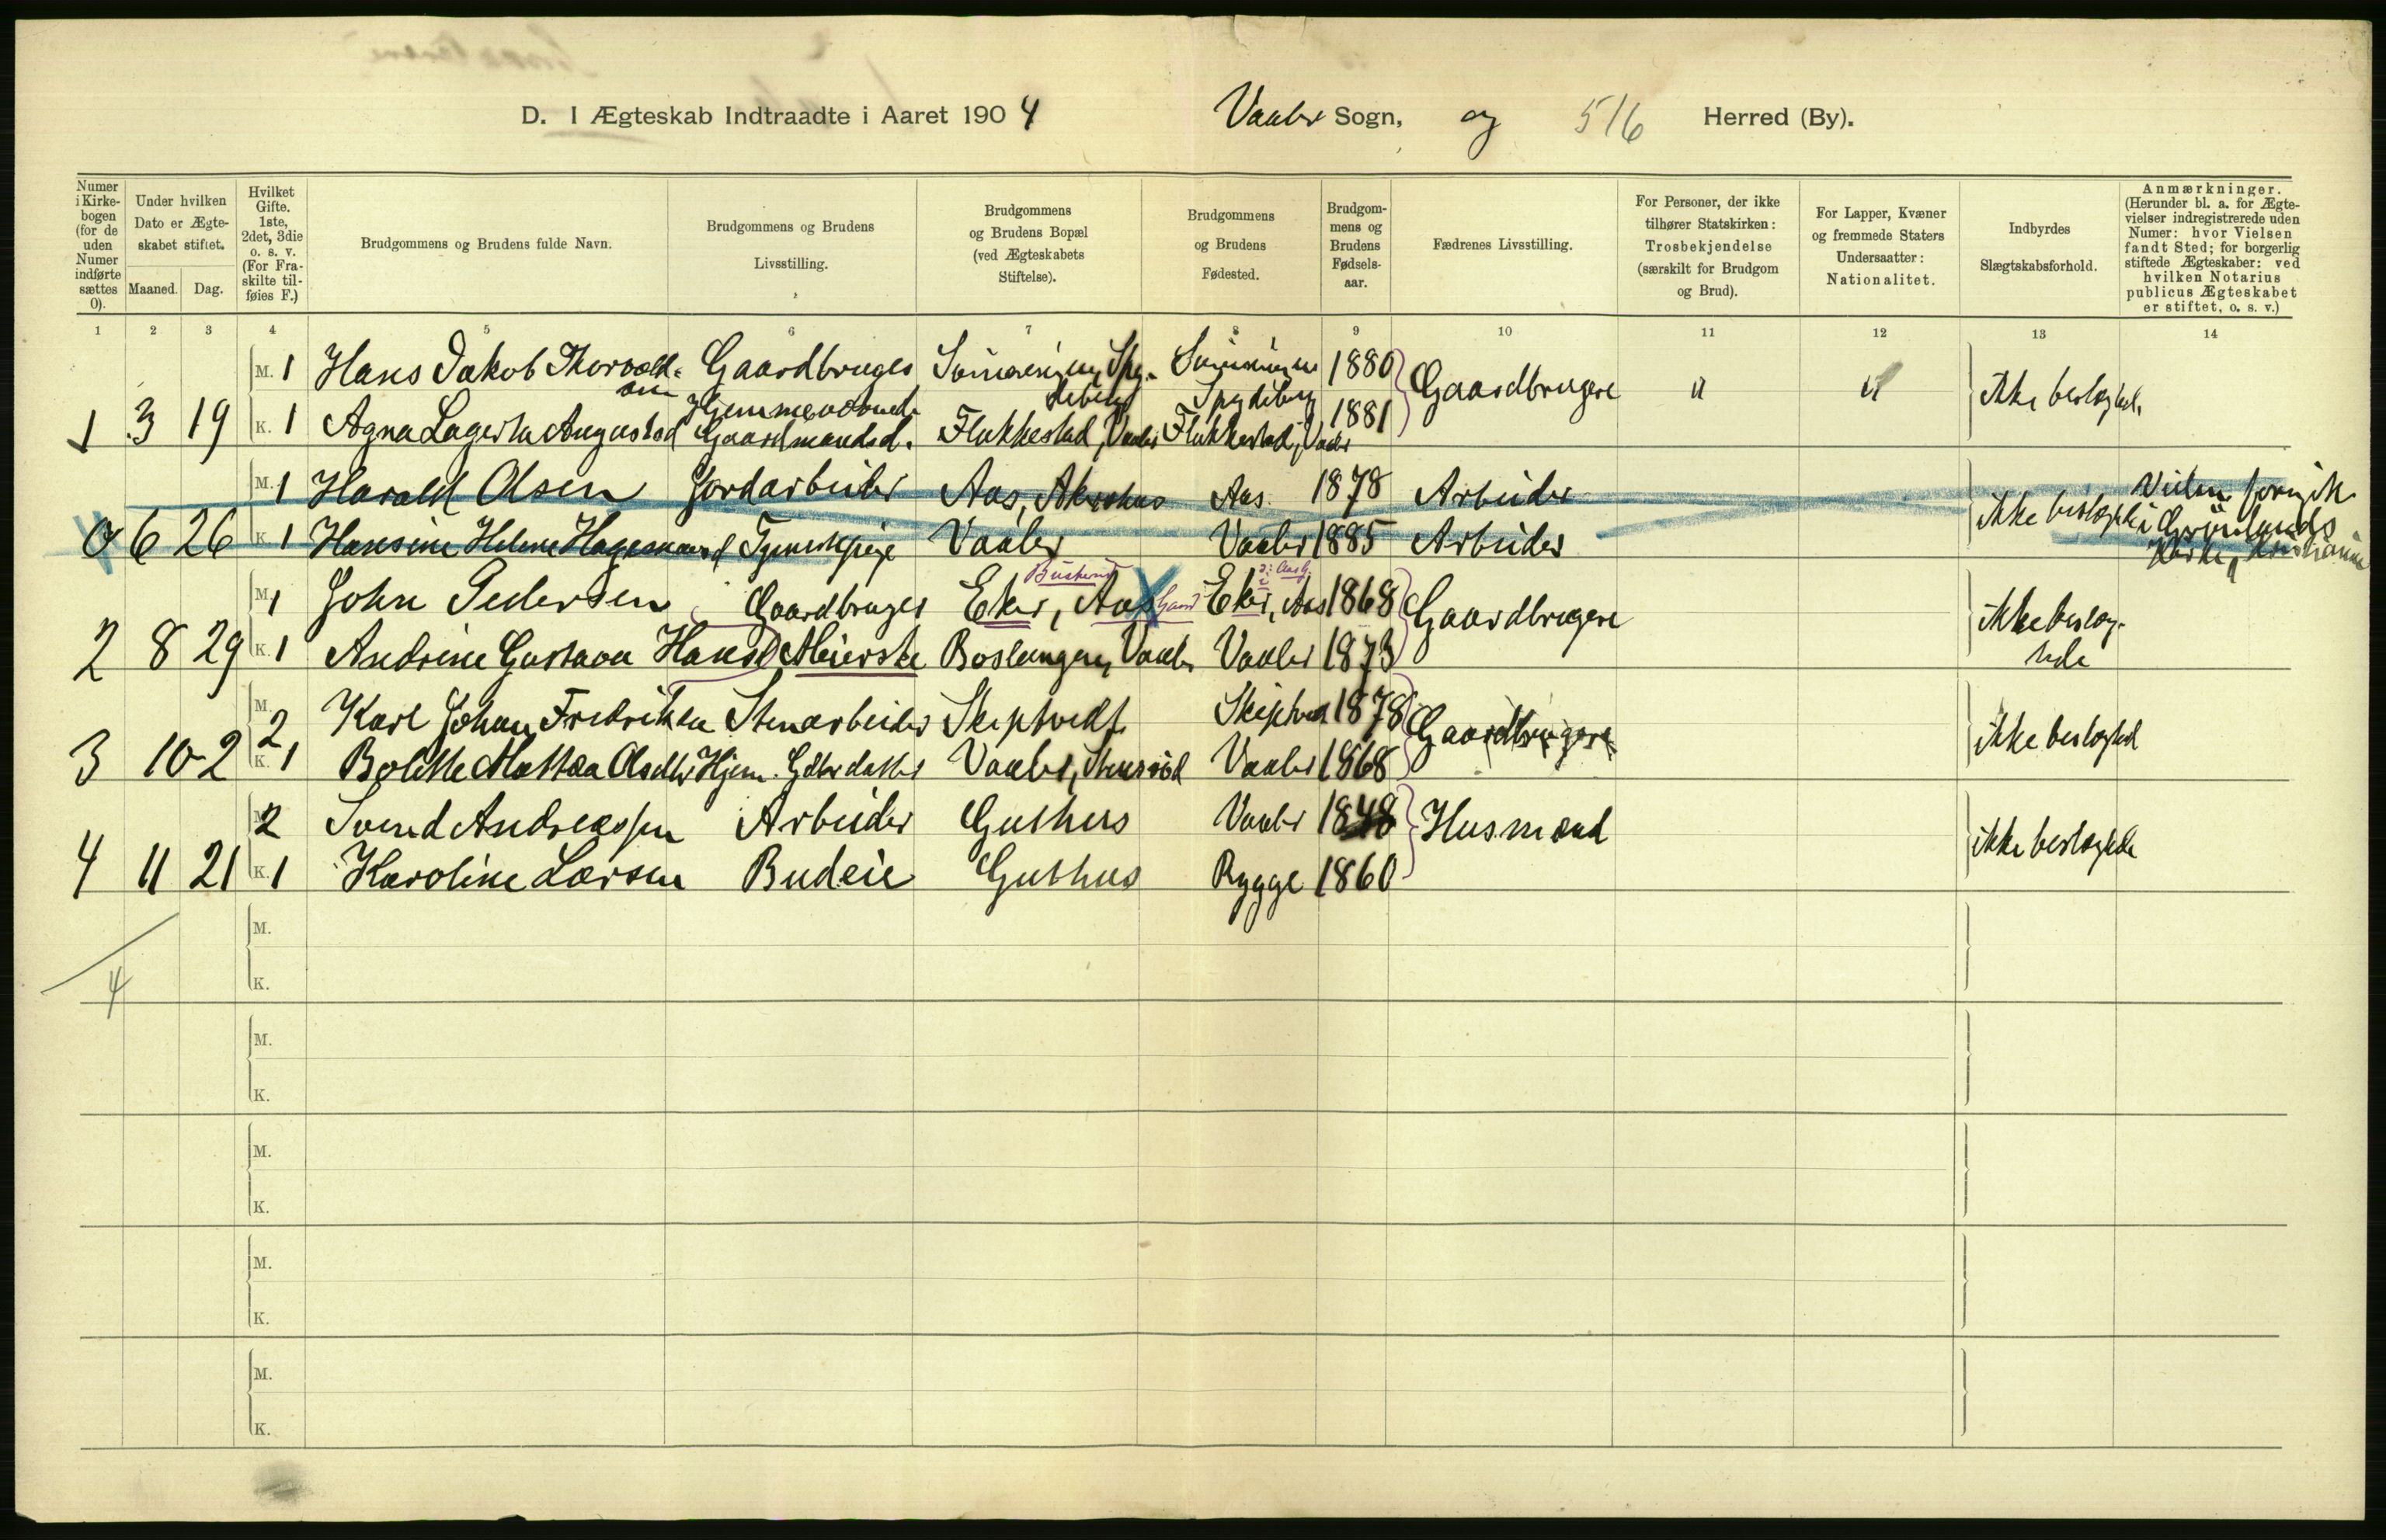 D. I Ægteskab Indtraadte i Aaret 1904 Vaaler Sogn, og 5/6 Herred (By).
Numer i Kirkebogen (for de uden Numer indførte sættes 0).
Under hvilken Dato er Ægteskabet stiftet.
Maaned. Dag.
Hvilket Gifte. 1ste, 2det, 3die o. s. v. (For Fraskilte tilføies F.)
Brudgommens og Brudens fulde Navn.
Brudgommens og Brudens Livsstilling.
Brudgommens og Brudens Bopæl (ved Ægteskabets Stiftelse).
Brudgommens og Brudens Fødested.
Brudgommens og Brudens Fødselsaar.
Fædrenes Livsstilling.
For Personer, der ikke tilhører Statskirken: Trosbekjendelse (særskilt for Brudgom og Brud).
For Lapper, Kvæner og fremmede Staters Undersaatter: Nationalitet.
Indbyrdes Slægtskabsforhold.
Anmærkninger. (Herunder bl. a. for Ægtevielser indregistrerede uden Numer: hvor Vielsen fandt Sted; for borgerlig stiftede Ægteskaber: ved hvilken Notarius publicus Ægteskabet er stiftet, o. s. v.)
1 2 3 4 5 6 7 8 9 10 11 12 13 14
M. 1 Hans Jakob Thorvaldsen Gaardbruger Spydeberg Spydeberg 1880 Gaardbrugere " " ikke beslægted.
1 3 19 K. 1 Agna Lagerta Augustad Hjemmeværende Gaardmandsd. Flukkestad, Vaaler Flukkestad, Vaaler 1881
M. 1 Harald Olsen Jordarbeider Aas, Akershus Aas 1878 Arbeider Vielsen foregik
0 6 26 K. 1 Hansine Helene Hagesnaard Tjenestepige Vaaler Vaaler 1885 Arbeider ikke beslægtede i Grønlands Kirke, Kristiania
M. 1 John Pedersen Gaardbruger Eker, Aas Buskerud Gaard Eker, Aas 1868 Gaardbrugere ikke beslægtede
2 8 29 K. 1 Andrine Gustava Hansd. Meierske Boslangen, Vaaler Vaaler 1873
M. 2 Karl Johan Fredriksen Stenarbeider Skiptvedt Skiptvedt 1878 Gaardbrugere ikke beslægted
3 10 2 K. 1 Bolette Mattea Olsdtr Hjem. Gdbr datter Vaaler, Vaaler 1868
M. 2 Svend Andreassen Arbeider Guthus Vaaler 1848 Husmænd ikke beslægtede
4 11 21 K. 1 Karoline Larsen Budeie Guthus Rygge 1860
M.
4 K.
M.
K.
M.
K.
M.
K.
M.
K.